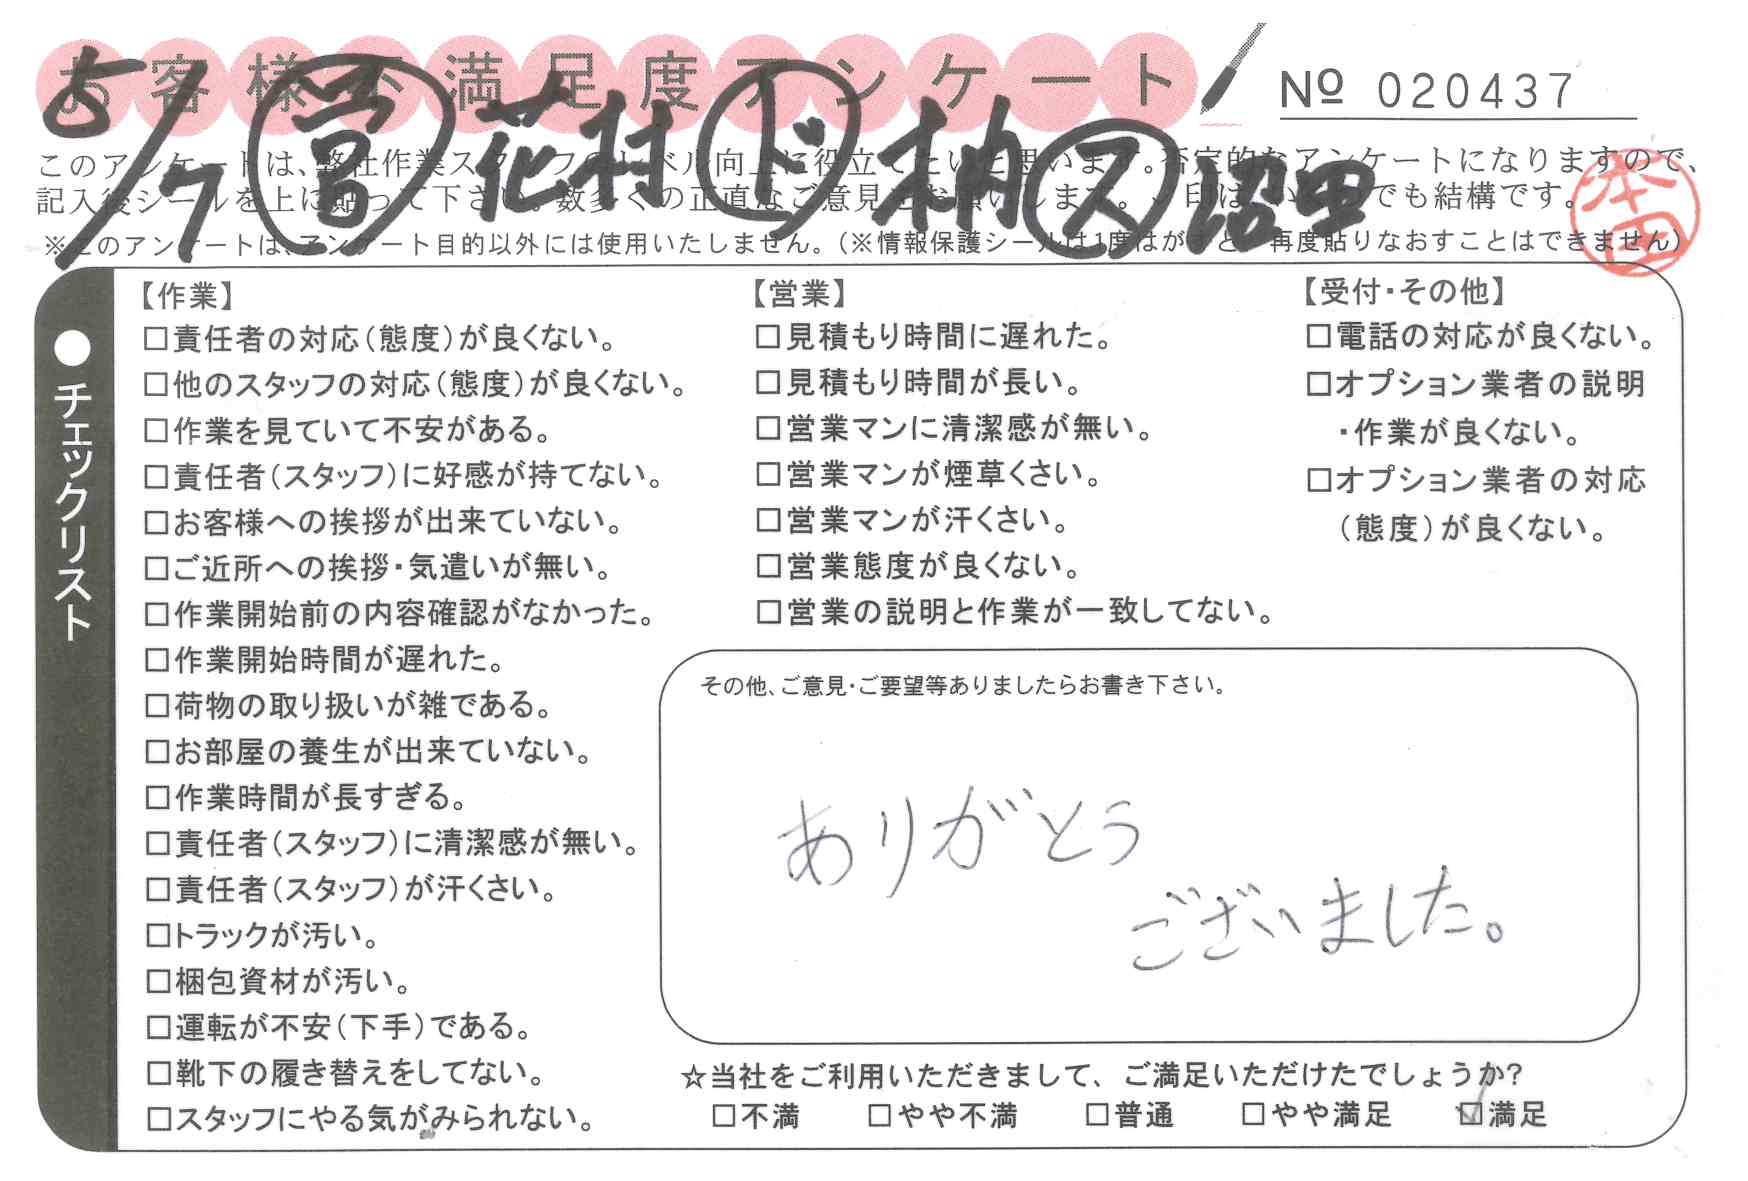 お客様不満足度アンケート
№ 020437
5/7 営 花村 ド 柏 ス 沼里
このアンケートは、弊社作業スタッフのレベル向上に役立てたいと思います。否定的なアンケートになりますので、
記入後シールを上に貼って下さい。数多くの正直なご意見をお願いします。
でも結構です。
本田
※このアンケートは、アンケート目的以外には使用いたしません。(※情報保護シールは1度はがすと、再度貼りなおすことはできません)
●チェックリスト
【作業】
□責任者の対応(態度)が良くない。
□他のスタッフの対応(態度)が良くない。
□作業を見ていて不安がある。
□責任者(スタッフ)に好感が持てない。
□お客様への挨拶が出来ていない。
□ご近所への挨拶・気遣いが無い。
□作業開始前の内容確認がなかった。
□作業開始時間が遅れた。
□荷物の取り扱いが雑である。
□お部屋の養生が出来ていない。
□作業時間が長すぎる。
□責任者(スタッフ)に清潔感が無い。
□責任者(スタッフ)が汗くさい。
□トラックが汚い。
□梱包資材が汚い。
□運転が不安(下手)である。
□靴下の履き替えをしてない。
□スタッフにやる気がみられない。
【営業】
□見積もり時間に遅れた。
□見積もり時間が長い。
□営業マンに清潔感が無い。
□営業マンが煙草くさい。
□営業マンが汗くさい。
□営業態度が良くない。
□営業の説明と作業が一致してない。
【受付・その他】
□電話の対応が良くない。
□オプション業者の説明
・作業が良くない。
□オプション業者の対応
(態度)が良くない。
その他、ご意見・ご要望等ありましたらお書き下さい。
ありがとう
ございました。
☆当社をご利用いただきまして、ご満足いただけたでしょうか?
□不満 □やや不満 □普通 □やや満足 ☑満足